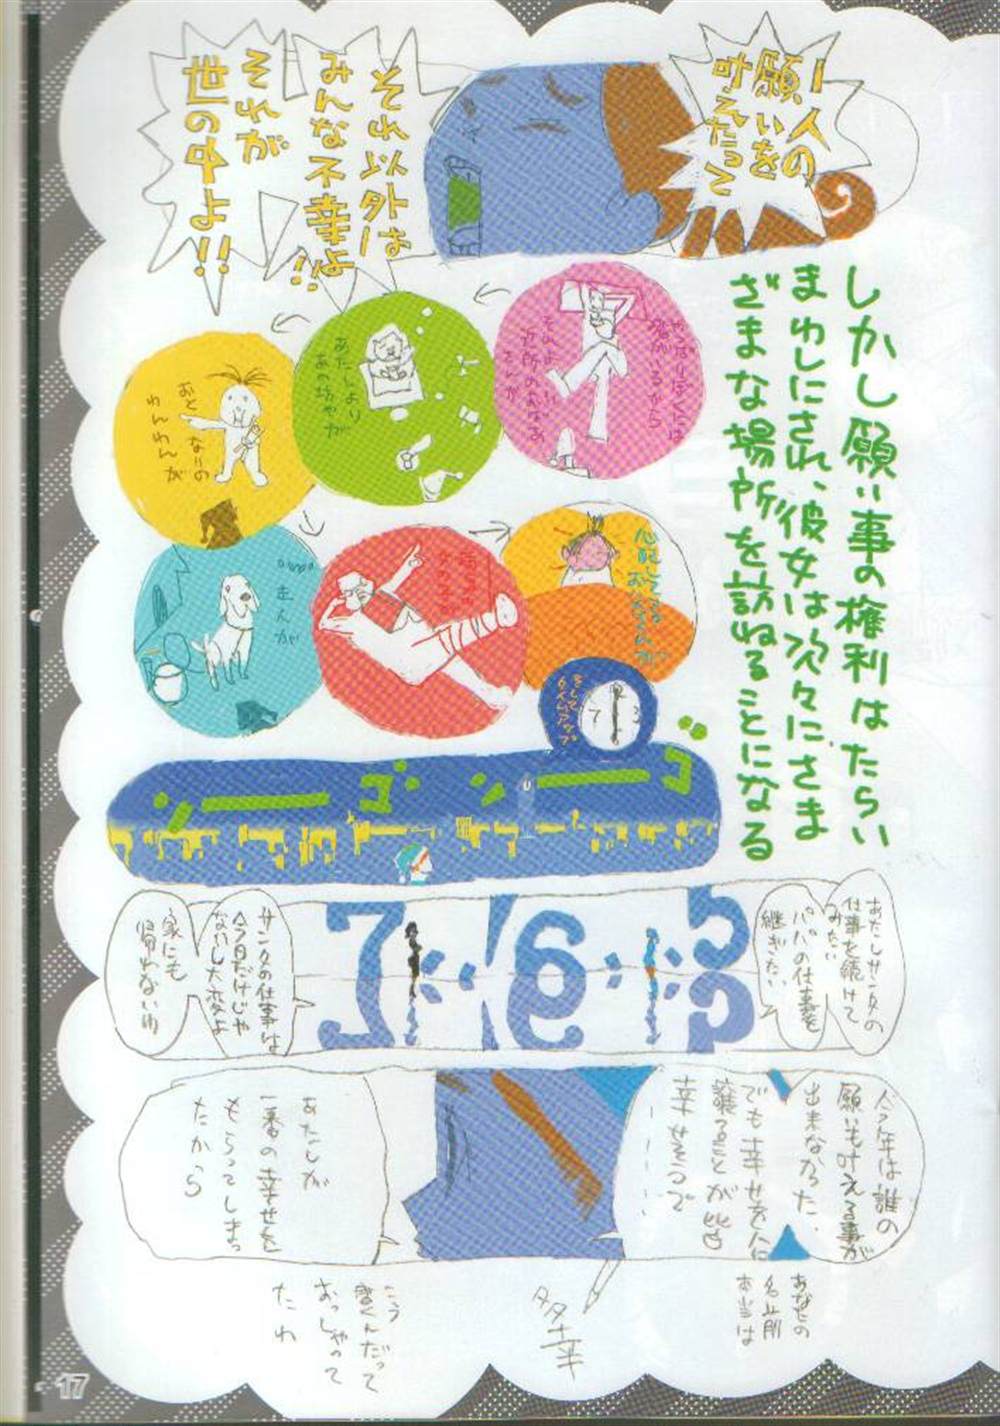 一人の
願いを
叶えたって
それ以外は
みんな不幸よ!!
それが
世の中よ!!
しかし願い事の権利はたらい
まわしにされ、彼女は次々にさま
ざまな場所を訪ねることになる
やっぱりぼくには
それよ
近所のおばあ
さんが
あたしより
あの坊やが
おとなりの
わんわんが
主人が
心配してる
おくさんが
そして
タイムアップ
ゴーン
ゴーン
7
6
5
あたしサンタの
仕事を続けて
みたい
パパの仕事を
継ぎたい
サンタの仕事は
今日だけじゃ
ないし大変よ
家にも
帰れないわ
今年は誰の
願いも叶える事が
出来なかった、
でも幸せを人に
譲ることが皆
幸せそうで
あたしが
一番の幸せを
もらってしまっ
たから
あなたの
名前
本当は
多幸
こう
書くんだって
おっしゃって
たわ
17